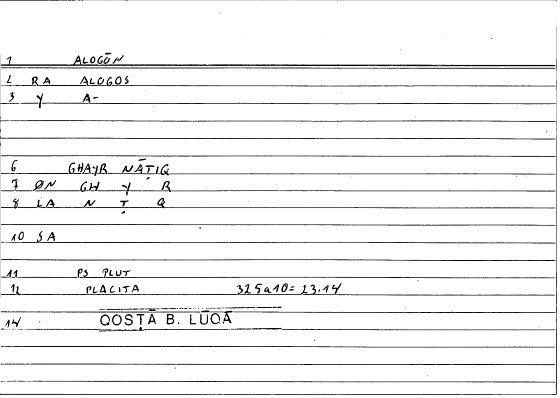 1 ALOGŌN
2 RA ALOGOS
3 Y A-
6 GHAYR NĀṬIQ
7 ØN GH Y R
8 LA N Ṭ Q
10 SA
11 PS PLUT
12 PLACITA 325a10 = 23.14
14 QOSṬĀ B. LŪQĀ